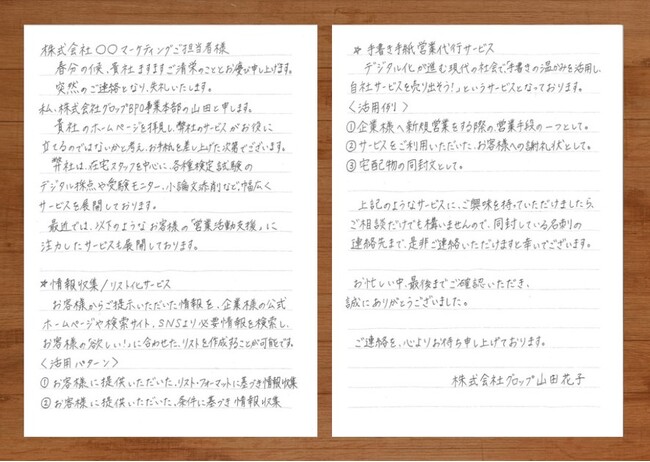 株式会社〇〇マーケティングご担当者様
春分の候、貴社ますますご清栄のこととお慶び申し上げます。
突然のご連絡となり、失礼いたします。
私、株式会社グロップBPO事業本部の山田と申します。
貴社のホームページを拝見し、弊社のサービスがお役に
立てるのではないかと考え、お手紙を差し上げた次第でございます。
弊社は、在宅スタッフを中心に、各種検定試験の
デジタル採点や受験モニター、小論文添削など、幅広く
サービスを展開しております。
最近では、以下のようなお客様の「営業活動支援」に
注力したサービスも展開しております。
★情報収集/リスト化サービス
お客様からご提示いただいた情報を、企業様の公式
ホームページや検索サイト、SNSより必要情報を検索し、
お客様の「欲しい!」に合わせた、リストを作成することが可能です。
〈活用パターン〉
①お客様に提供いただいた、リスト・フォーマットに基づき情報収集
②お客様に提供いただいた、条件に基づき情報収集
★手書き手紙営業代行サービス
デジタル化が進む現代の社会で「手書きの温かみを活用し、
自社サービスを売り出そう!」というサービスとなっております。
〈活用例〉
①企業様へ新規営業をする際の、営業手段の一つとして。
②サービスをご利用いただいた、お客様への謝礼状として。
③宅配物の同封文として。
上記のようなサービスに、ご興味を持っていただけましたら、
ご相談だけでも構いませんので、同封している名刺の
連絡先まで、是非ご連絡いただけますと幸いでございます。
お忙しい中、最後までご確認いただき、
誠にありがとうございました。
ご連絡を、心よりお待ち申し上げております。
株式会社グロップ 山田花子